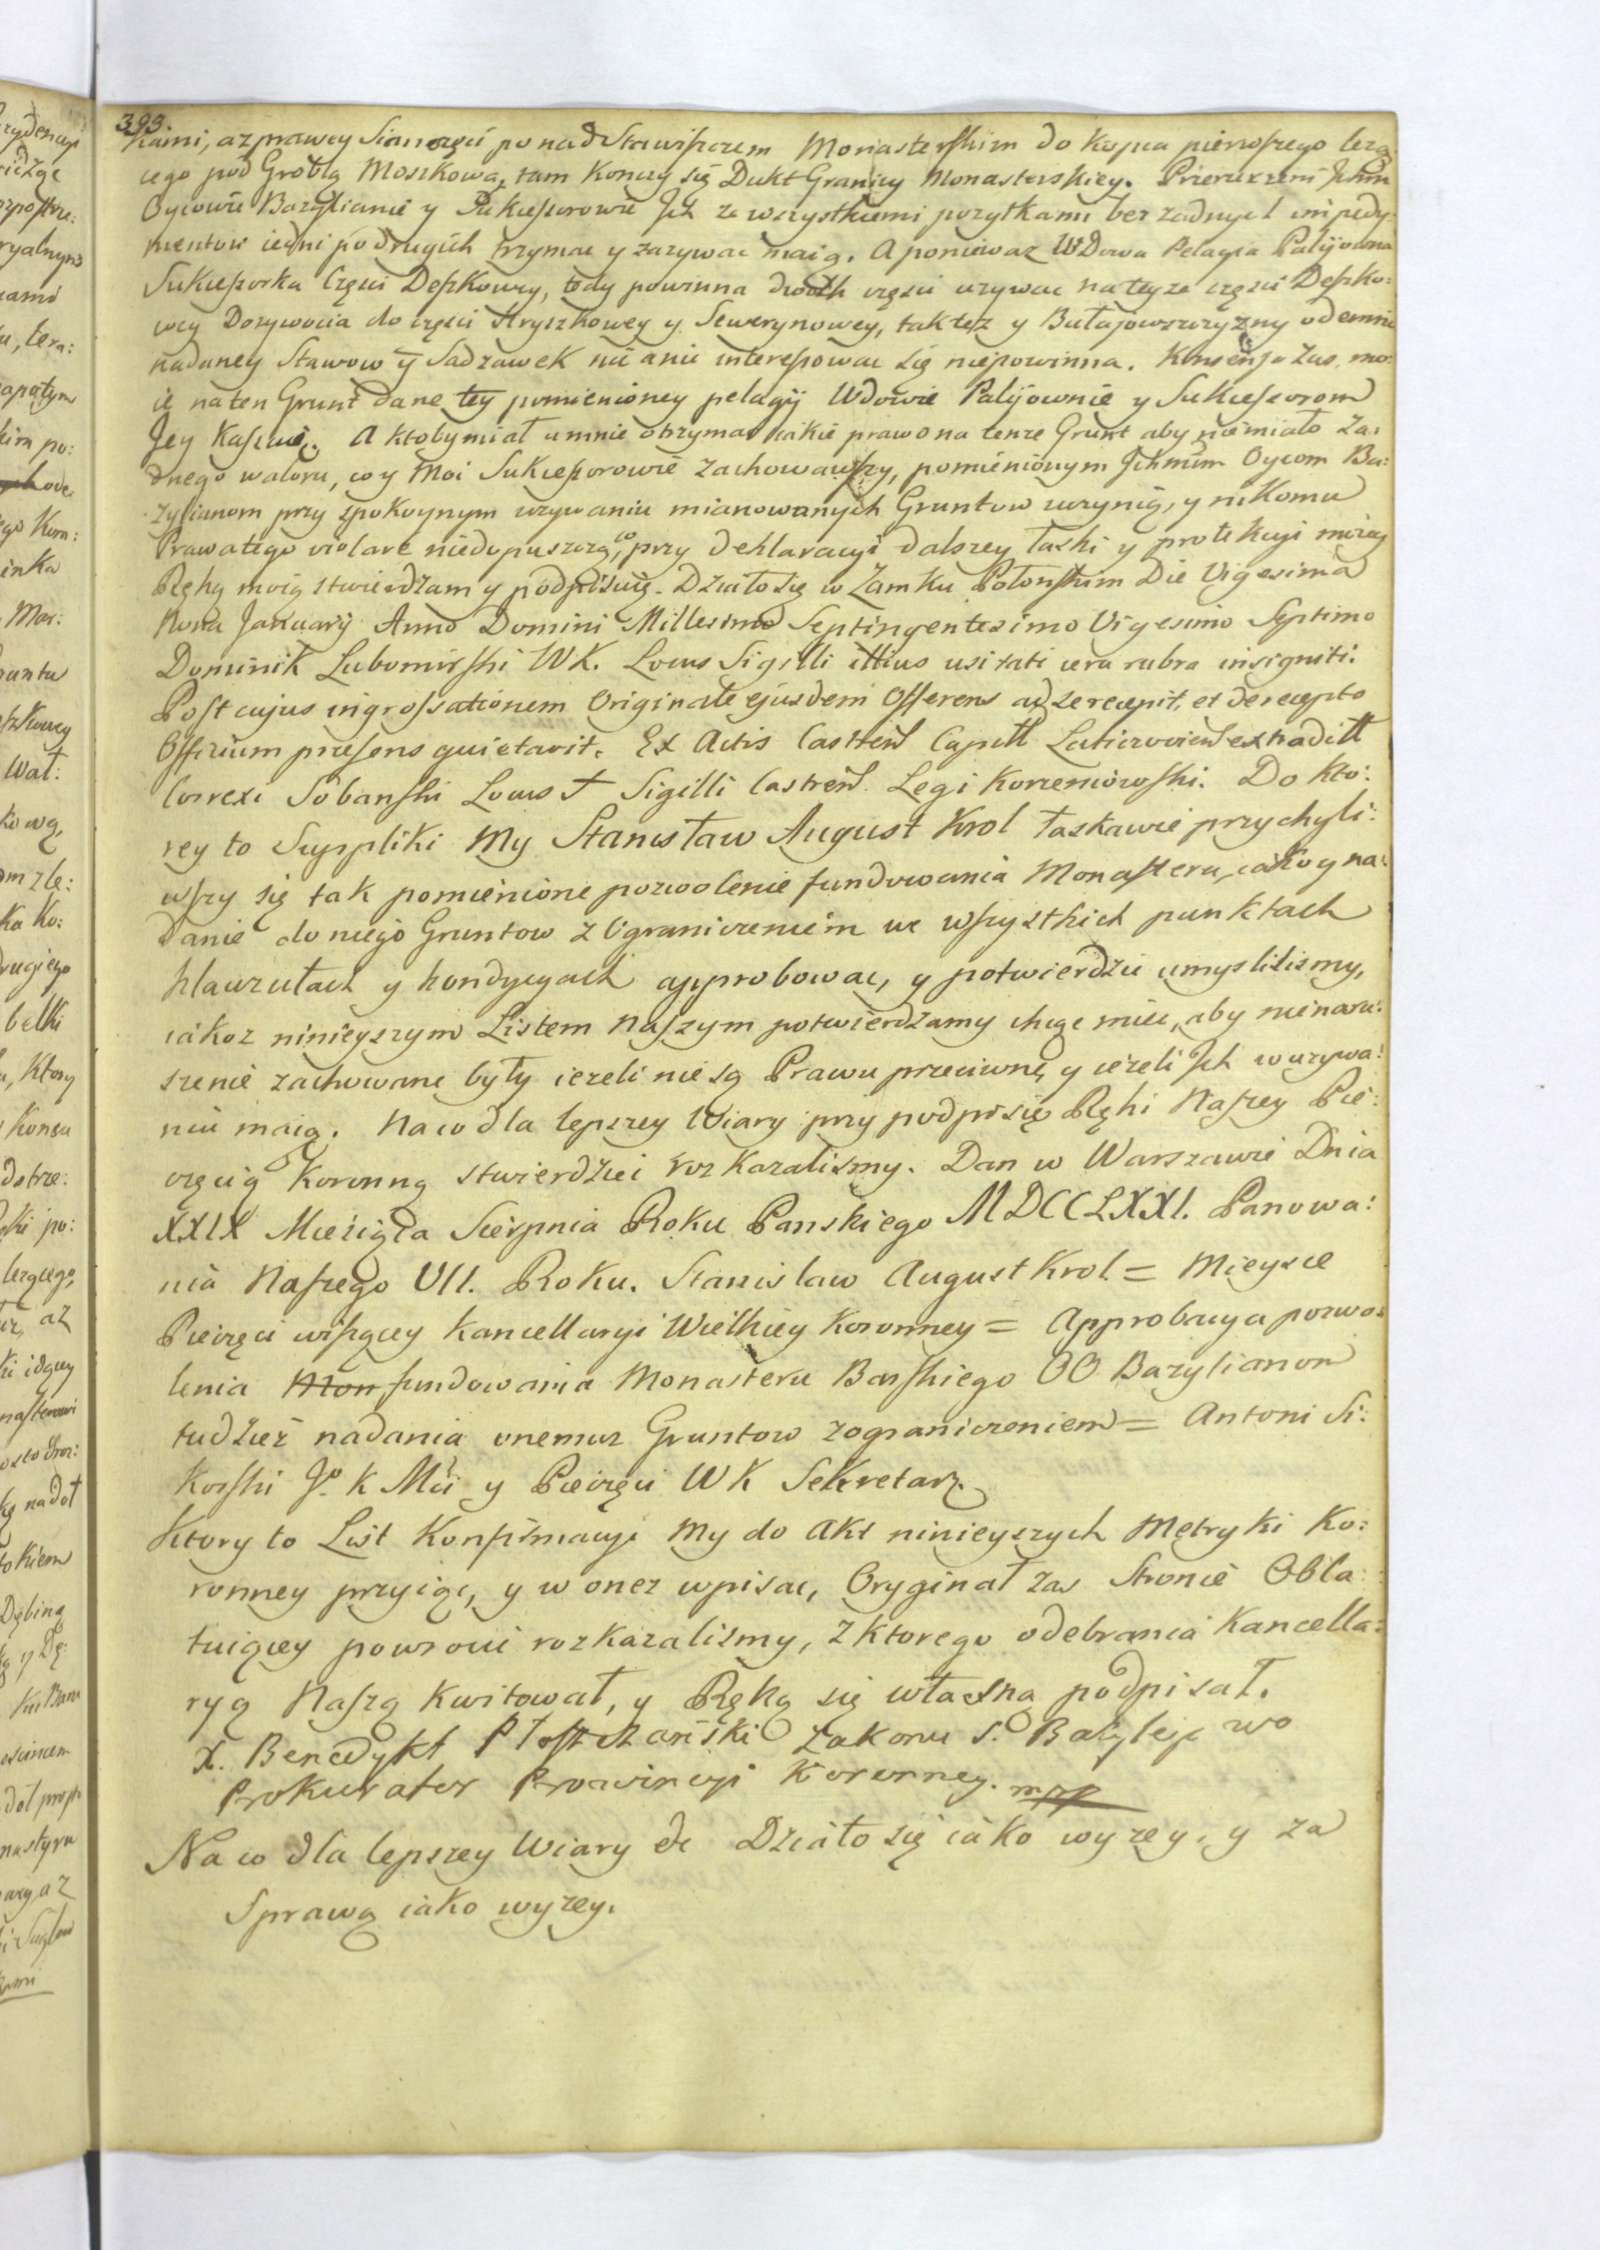 393.
kami, az prawey Sianozęci ponad Stawiszczem Monasterskim do Kopca pierwszego lezą
cego pod Groblą Moszkową, tam konczy się Dukt Granicy Monasterskiey. Przerzeczeni Ichmm
Oycowie Bazylianie y Sukcessorowie Ich ze wszystkiemi pozytkami bez zadnych impedy:
mentow iedni po drugich trzymac y zazywac maią. A poniewaz Wdowa Pelagia Palijowna
Sukcessorka Częsci Deszkowey, tedy powinna dwoch częsci uzywac na teyze częsci Deszko:
wey Dozywocia do częsci Hryszkowey y Sewerynowey, tak tez y Bułajowszczyzny odemnie
nadaney Stawow y Sadzawek nic a nic interessowac się niepowinna. Konsensa zas mo:
ie na ten Grunt dane tey pomienioney pelagij Wdowie Palijownie y Sukcessorom
Jey Kassuię. A ktoby miał u mnie otrzymac iakie prawo na tenze Grunt aby niemiało za:
dnego waloru, co y Moi Sukcessorowie zachowawszy, pomienionym Ichmm Oycom Ba:
zylianom przy spokoynym uzywaniu mianowanych Gruntow uczynią, y nikomu
Prawa tego violare niedopuszczą, co przy deklaracyi dalszey łaski y protekcyi moiey
Ręką moią stwierdzam y podpisuię. Działo się w Zamku Połonskim Die Vigesima
Nona Januarij Anno Domini Millesimo Septingentesimo Vigesimo Septimo
Dominik Lubomirski WK. Locus Sigilli illius usitati cera rubra insigniti.
Post cujus ingrossationem Originale ejusdem Offerens ad se recepit, et de recepto
Officium praesens quietavit. Ex Actis Castren Capitl Laticzovien extradit
Correxi Sobanski Locus † Sigilli Castren. Legi Korzeniowski. Do kto:
rey to Suppliki My Stanisław August Krol łaskawie przychyli:
wszy się tak pomienione pozwolenie fundowania Monastera, iako y na:
danie do niego Gruntow z Ograniczeniem we wszystkich punktach
klauzułach y kondycyach approbowac, y potwierdzic umyslilismy,
iakoz ninieyszym Listem Naszym potwierdzamy chcąc miec, aby nienaru:
szenie zachowane były iezeli nie są Prawu przeciwne, y iezeli Ich w uzywa:
niu maią. Na co dla lepszey Wiary przy podpisie Ręki Naszey Pie:
częcią Koronną stwierdzic rozkazalismy. Dan w Warszawie Dnia
XXIX Miesiąca Sierpnia Roku Panskiego MDCCLXXI. Panowa:
nia Naszego VII. Roku. Stanislaw August Krol = Mieysce
Pieczęci wiszącey Kancellaryi Wielkiey Koronney = Approbacya pozwo:
lenia Mon fundowania Monasteru Barskiego OO Bazylianow
tudziez nadania onemuz Gruntow z ograniczeniem = Antoni Si:
korski Jo K Mci y Pieczęci WK Sekretarz.
Ktory to List Konfirmacyi My do Akt ninieyszych Metryki Ko:
ronney przyiąc, y w onez wpisac, Oryginał zas Stronie Obla:
tuiącey powrocic rozkazalismy, z ktorego odebrania Kancella:
ryą Naszą kwitował, y Ręką się własną podpisał.
X. Benedykt Zakonu S. Bazylego wo
Prokurator Prowincyi Koronney. mpp
Na co dla lepszey Wiary &c Działo się iako wyzey, y za
Sprawą iako wyzey.